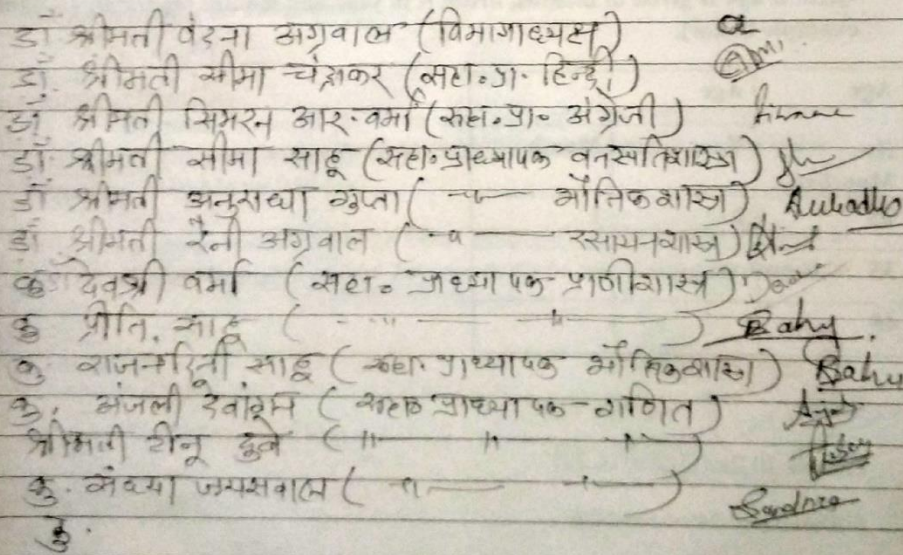 डॉ श्रीमती वंदना अग्रवाल (विभागाध्यक्ष)
डॉ. श्रीमती सीमा चंद्राकर (सहा. प्रा. हिन्दी)
डॉ श्रीमती सिमरन आर. वर्मा (सहा. प्रा. अंग्रेजी)
डॉ. श्रीमती सीमा साहू (सहा. प्राध्यापक वनस्पतिशास्त्र)
डॉ श्रीमती अनुराधा गुप्ता ( —"— भौतिकशास्त्र) Anuradha
डॉ श्रीमती रैनी अग्रवाल ( —"— रसायनशास्त्र)
देवश्री वर्मा (सहा. प्राध्यापक प्राणीशास्त्र)
कु प्रीति. साहू ( —"— —"— ) Sahu
कु. राजनंदिनी साहू (सहा. प्राध्यापक भौतिकशास्त्र) Sahu
कु. अंजली देवांगन (सहा. प्राध्यापक - गणित)
श्रीमती टीनू दुबे ( —"— —"— —"— )
कु. संध्या जायसवाल ( —"— —"— ) Sandhya
कु.